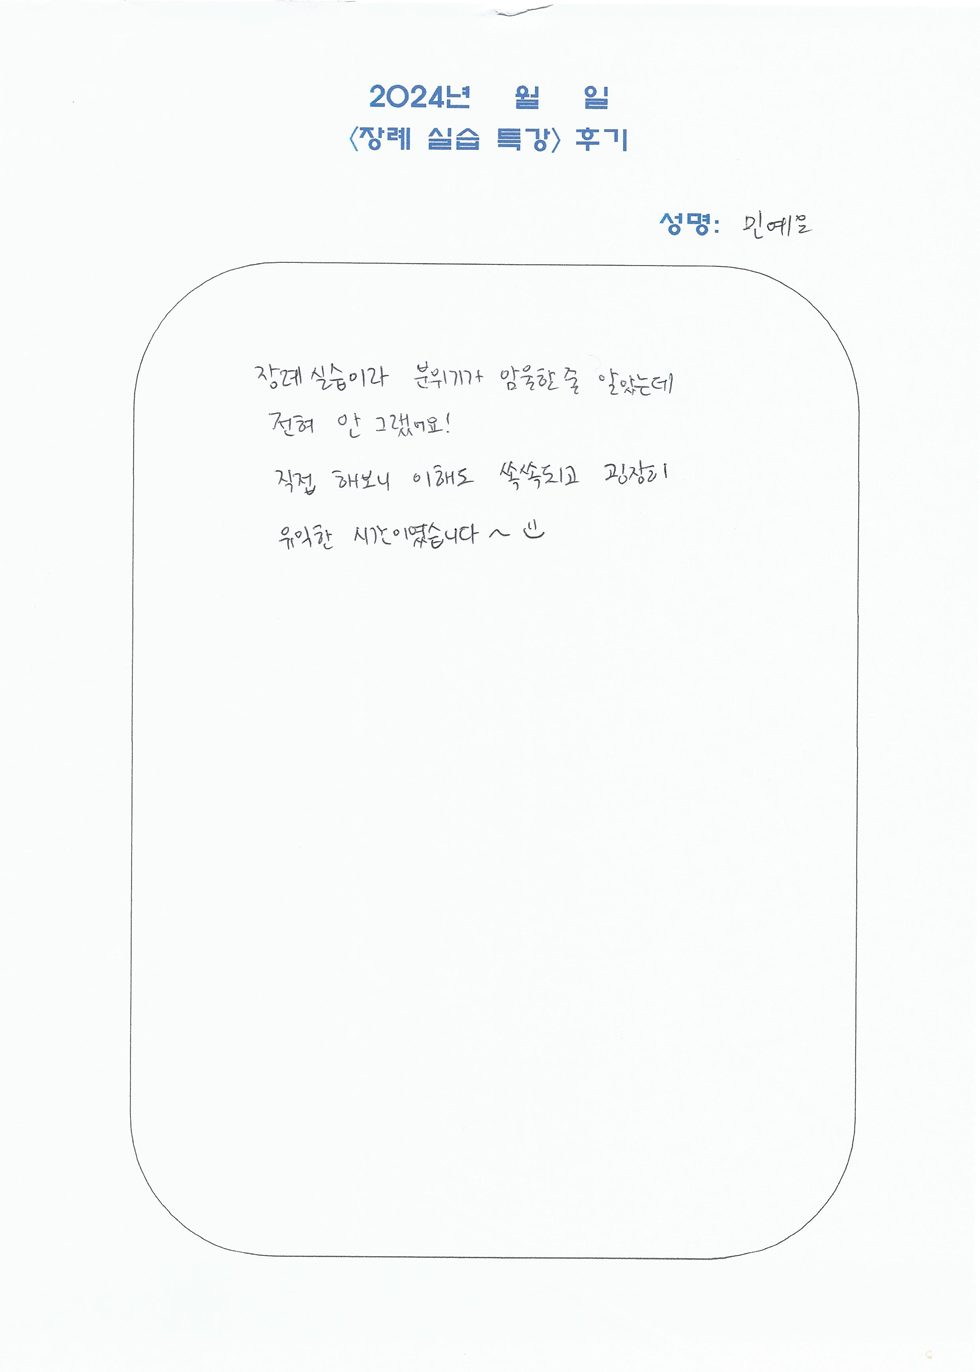 2024년 월 일
<장례 실습 특강> 후기
성명: 민예은
장례실습이라 분위기가 암울한줄 알았는데
전혀 안 그랬어요!
직접 해보니 이해도 쏙쏙되고 굉장히
유익한 시간이였습니다 ~